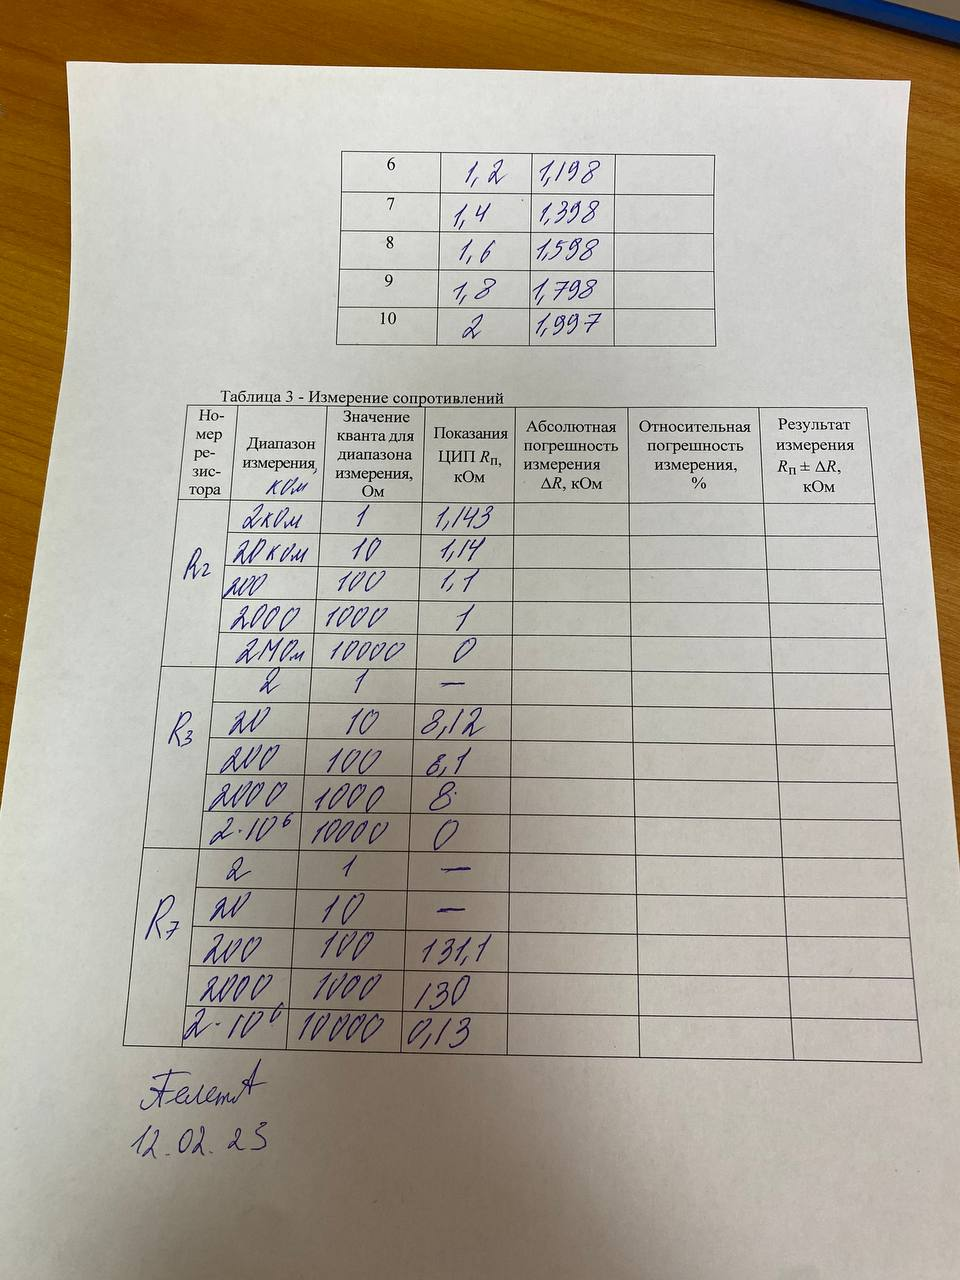 6 1,2 1,198
7 1,4 1,398
8 1,6 1,598
9 1,8 1,798
10 2 1,997
Таблица 3 - Измерение сопротивлений
Но-
мер
ре-
зис-
тора
Диапазон
измерения,
кОм
Значение
кванта для
диапазона
измерения,
Ом
Показания
ЦИП Rп,
кОм
Абсолютная
погрешность
измерения
ΔR, кОм
Относительная
погрешность
измерения,
%
Результат
измерения
Rп ± ΔR,
кОм
R2
2кОм 1 1,143
20 кОм 10 1,14
200 100 1,1
2000 1000 1
2МОм 10000 0
R3
2 1 —
20 10 8,12
200 100 8,1
2000 1000 8
2·10⁶ 10000 0
R7
2 1 —
20 10 —
200 100 131,1
2000 1000 130
2·10⁶ 10000 0,13
12.02.23